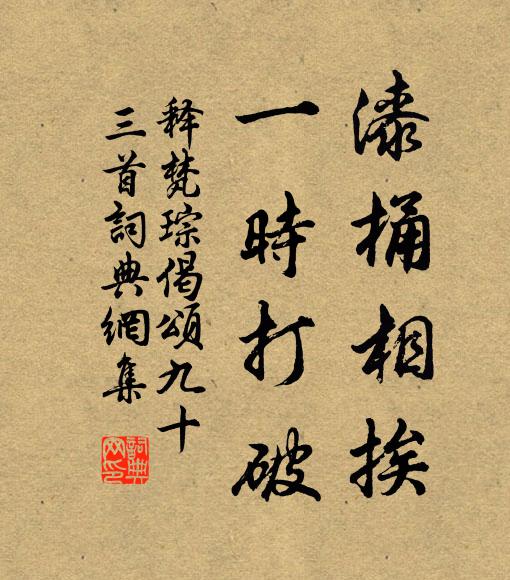 漆桶相挨
一時打破
释梵琮偈頌九十
三首詞典網集
詞典
网印